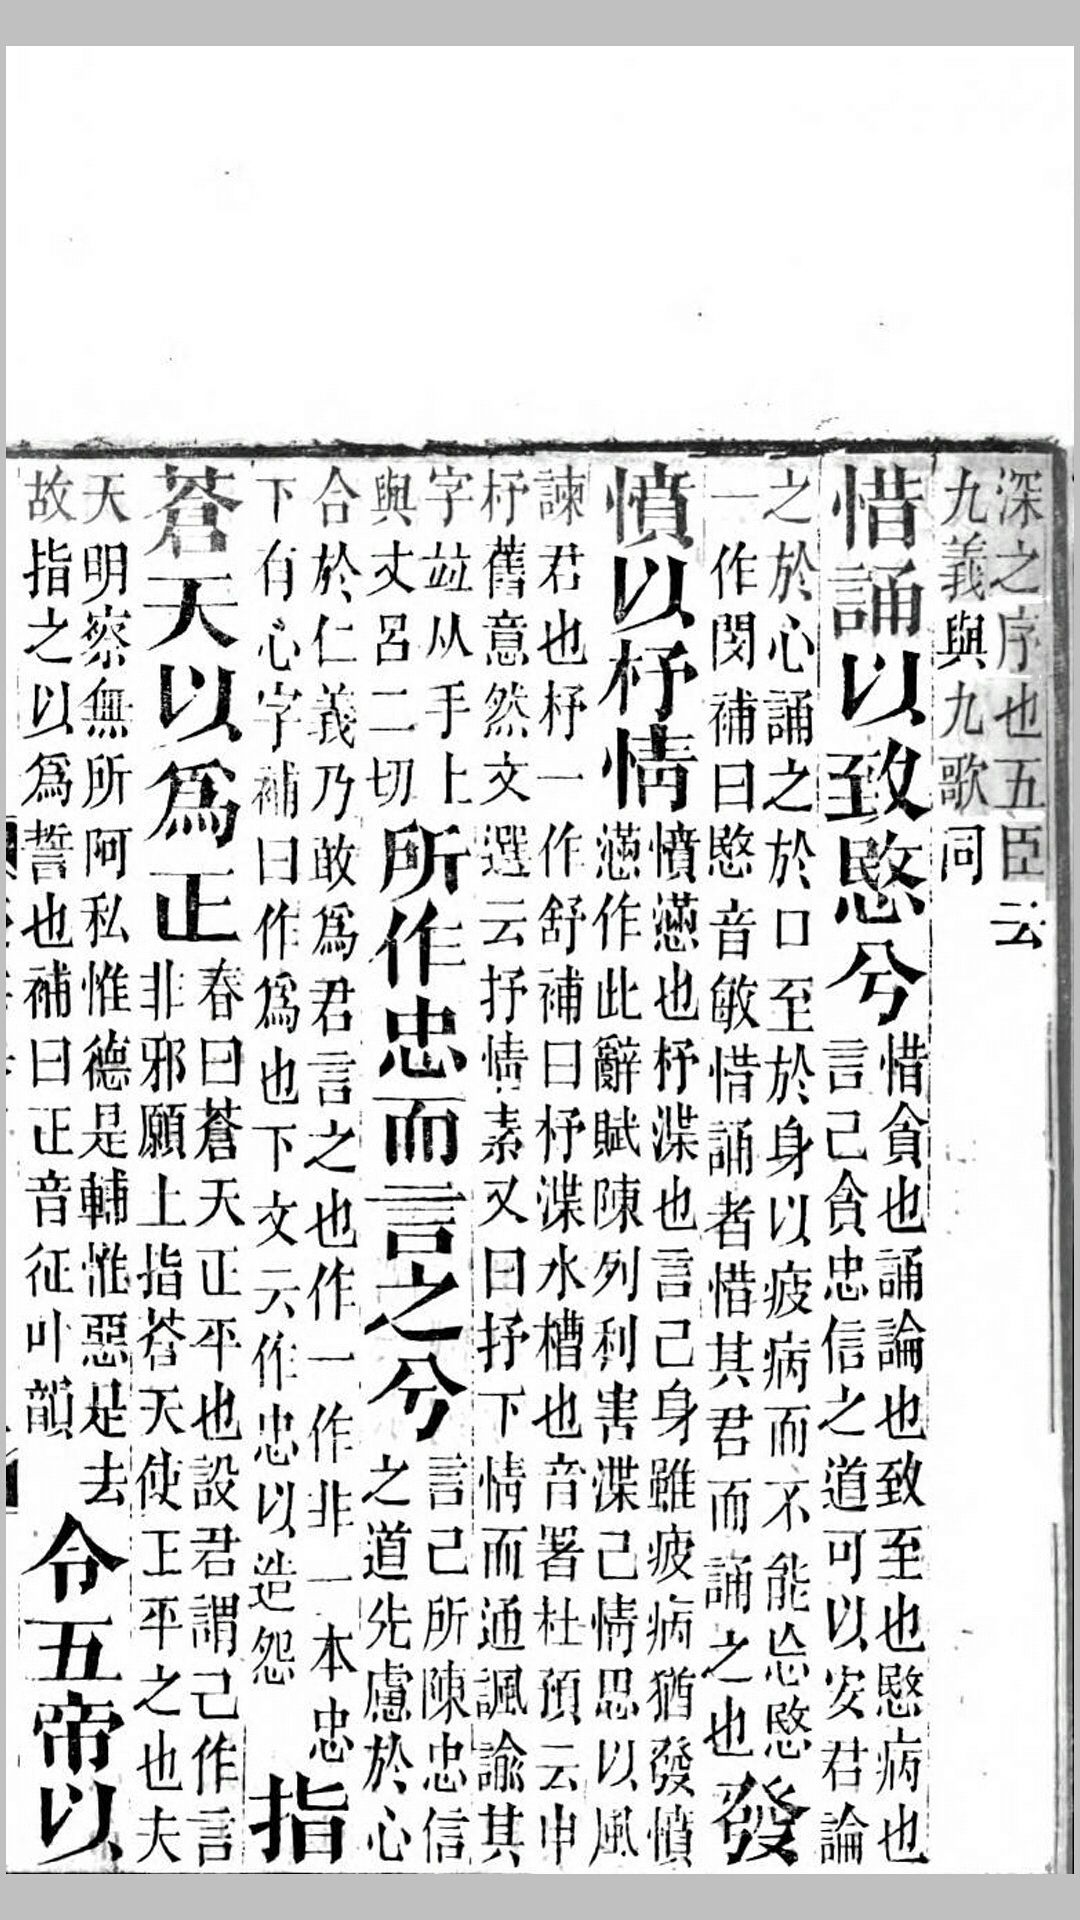 深之序也五臣云
九義與九歌同
惜誦以致愍兮
惜貪也誦論也致至也愍病也
言己貪忠信之道可以安君論
之於心誦之於口至於身以疲病而不能忘愍
一作閔補曰愍音敏惜誦者惜其君而誦之也
發
憤以杼情
憤懣也杼渫也言己身雖疲病猶發憤
懣作此辭賦陳列利害渫己情思以風
諫君也杼一作舒補曰杼渫水槽也音署杜預云申
杼舊意然文選云抒情素又曰抒下情而通諷諭其
字竝从手上
與丈呂二切
所作忠而言之兮
言己所陳忠信
之道先慮於心
合於仁義乃敢爲君言之也作一作非一本忠
下有心字補曰作爲也下文云作忠以造怨
指
蒼天以爲正
春曰蒼天正平也設君謂己作言
非邪願上指蒼天使正平之也夫
天明察無所阿私惟德是輔惟惡是去
故指之以爲誓也補曰正音征叶韻
令五帝以